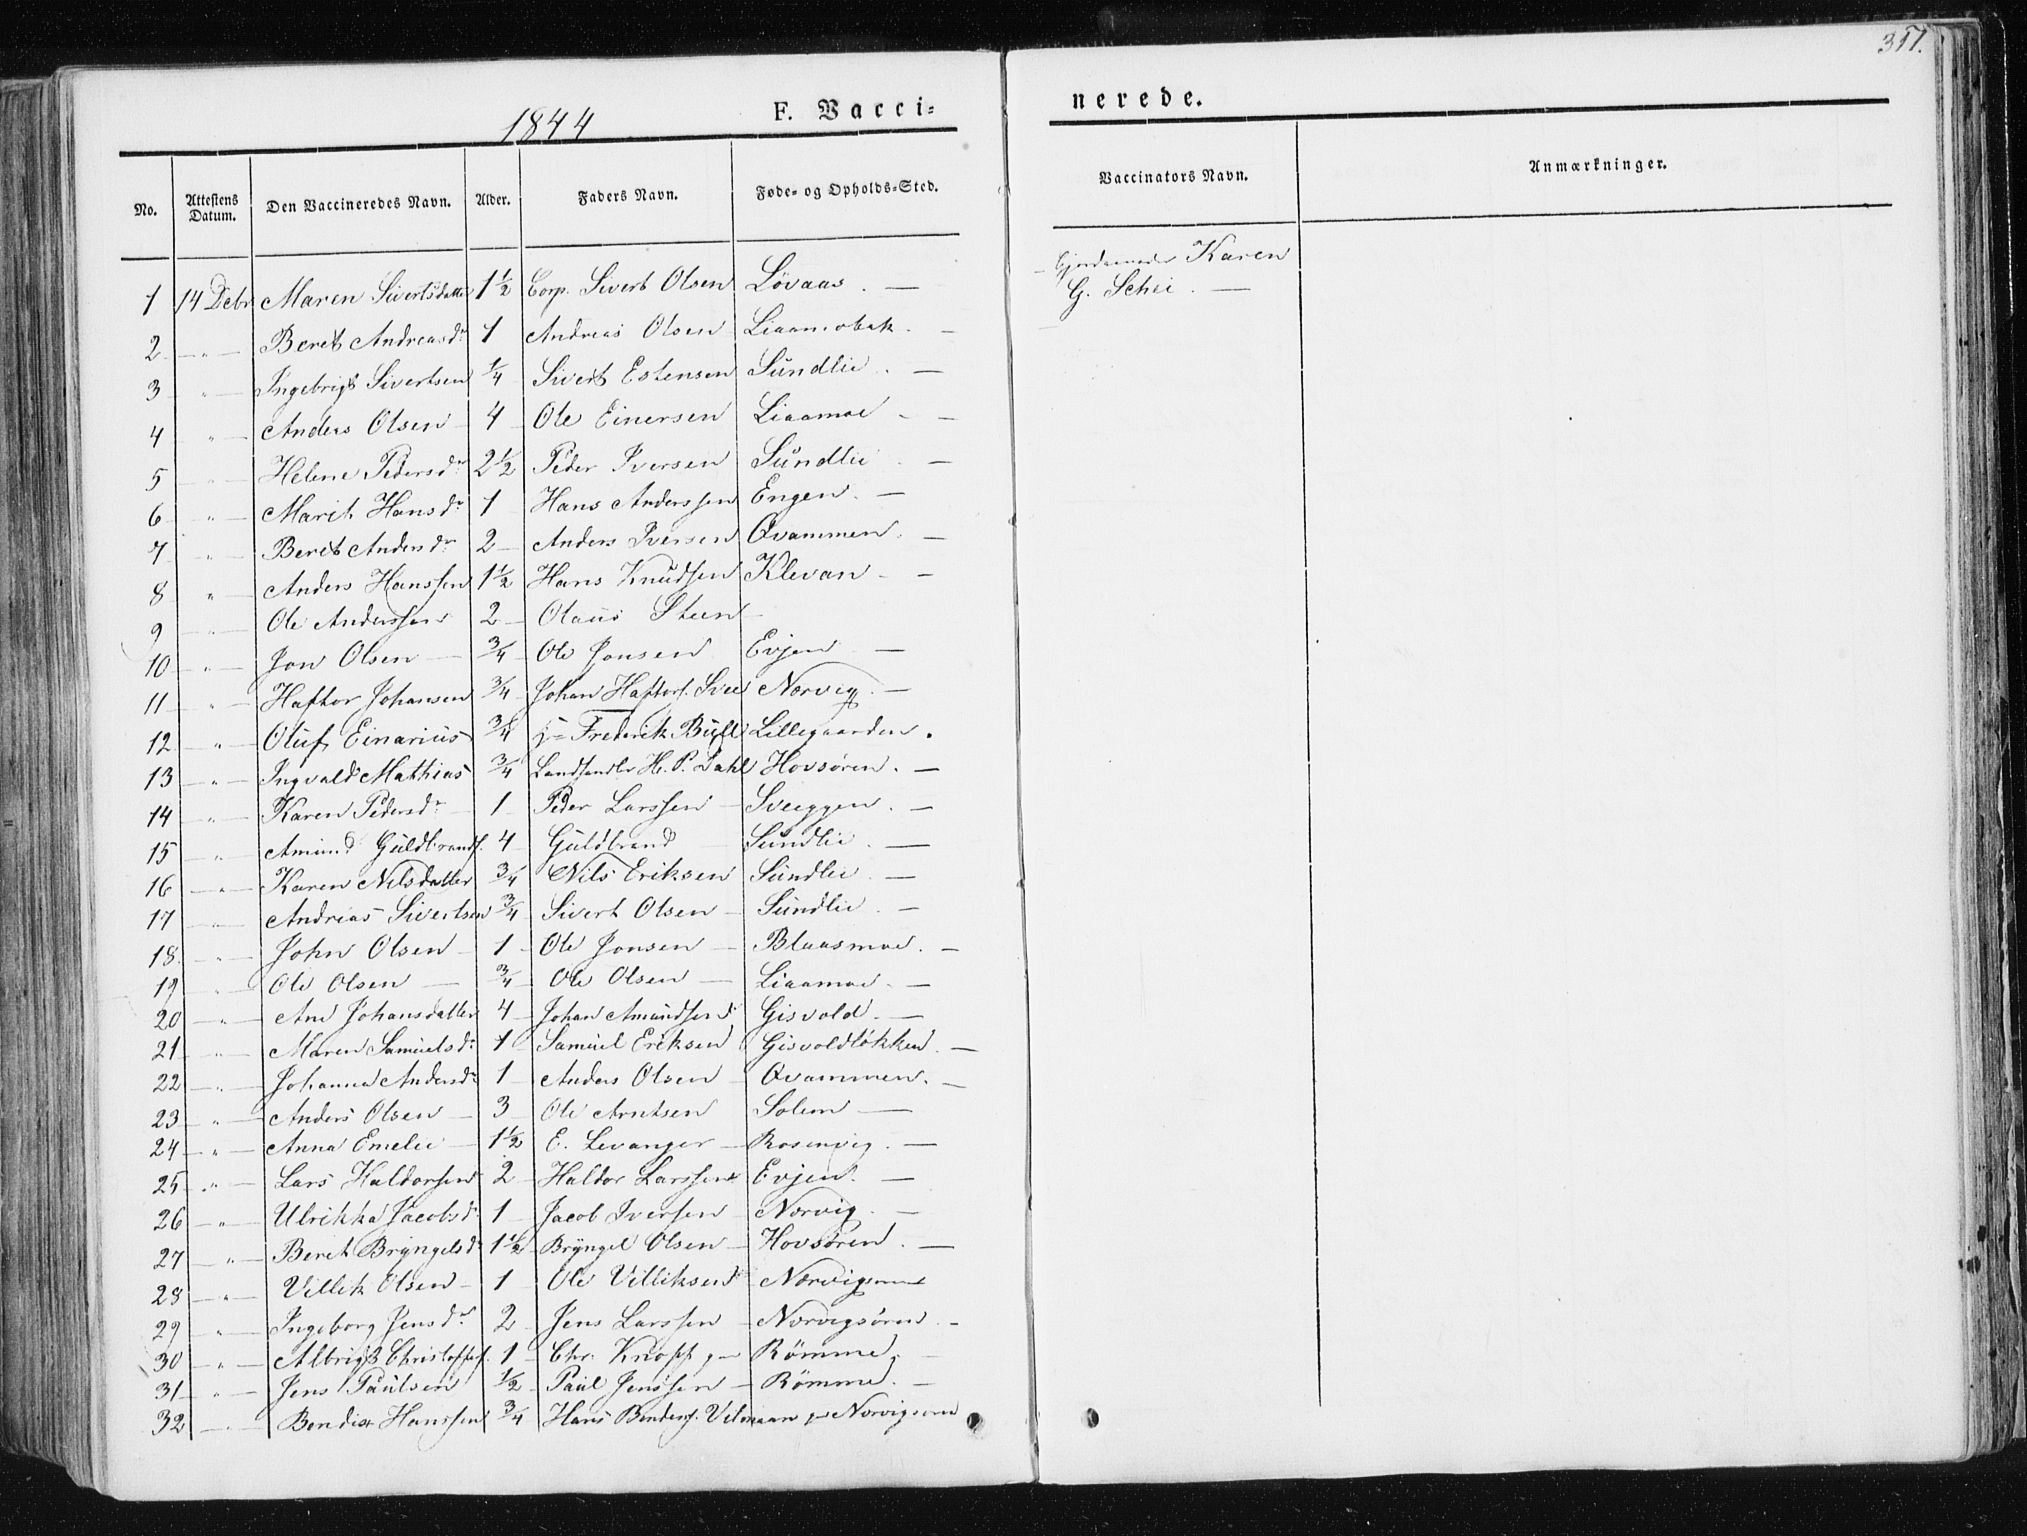 317.
1844 F. Vacci-
nerede.
No. Attestens Datum. Den Vaccineredes Navn. Alder. Faders Navn. Føde- og Opholds-Sted. Vaccinators Navn. Anmærkninger.
1 14 Decbr Maren Sivertsdatter 1½ Corp. Sivert Olsen Lövaas. — Karen
G. Schei. —
2 — " — Beret Andreasdr 1 Andreas Olsen Liaamobak. —
3 — " — Ingebrigt Sivertsen ¼ Sivert Estensen Sundlie. —
4 " — Anders Olsen — 4 — Ole Einersen Liaamoe — —
5 " — Helene Pedersdr 2½ Peder Iversen Sundlie. —
6 — " — Marit Hansdr 1 Hans Anderssen Engen. —
7 " — Beret Andersdr 2 — Anders Iversen Qvammen. —
8 " — Anders Hanssen 1½ Hans Knudsen Klevan — —
9 " — Ole Anderssen 2 — Olaus Steen —
10 — " — Jon Olsen — ¾ — Ole Jonsen Evjen —
11 — " — Haftor Johansen ¾ — Johan Haftors. Svee Norvig. —
12 — " — Oluf Einarius ¾ Frederik Bull Lillegaarden.
13 — " — Ingvald Mathias ¾ Landhandler H. P. Dahl Hovsøren. —
14 — " — Karen Pedersdr — 1 — Peder Larssen — Sveeggen. —
15 " — Amund Guldbrands. 4 — Guldbrand Sundlie. —
16 — " — Karen Nilsdatter ¾ Nils Eriksen Sundlie. —
17 — " — Andreas Sivertsen ¾ Sivert Olsen — Sundlie. —
18. — " — John Olsen — 1 — Ole Jonsen — Blaasmoe. —
19 " — Ole Olsen — ¾ — Ole Olsen — Liaamoe. —
20 — " — Ane Johansdatter 4 — Johan Amundsen Gisvold. —
21 — " — Maren Samuelsdr 1 Samuel Eriksen Gisvoldløkken. —
22 — " — Johanna Andersdr 1 — Anders Olsen — Qvammen. —
23 — " — Anders Olsen — 3 — Ole Arntsen Solem —
24 — " — Anna Emelie — 1½ E. Levanger — Rosenvig. —
25 — " — Lars Haldorsen 2 — Haldor Larssen Evjen. —
26 — " — Ulrikka Jacobsd. 1 — Jacob Iversen — Norvig. —
27 — " — Beret Bryngelsdr 1½ Bryngel Olsen — Hovsøren. —
28 — " — Villik Olsen — 1 — Ole Villiksen Norvigsøren
29 — " — Ingeborg Jensdr 2 — Jens Larssen — Norvigsøren. —
30 — " — Albrigt Christoffers. 1 — Chr. Knoph, — Römme, —
31 — " — Jens Paulsen ½ — Paul Jenssen — Römme. —
32 — " — Bendix Hanssen ¾ Hans Bendix. Norvigsøren